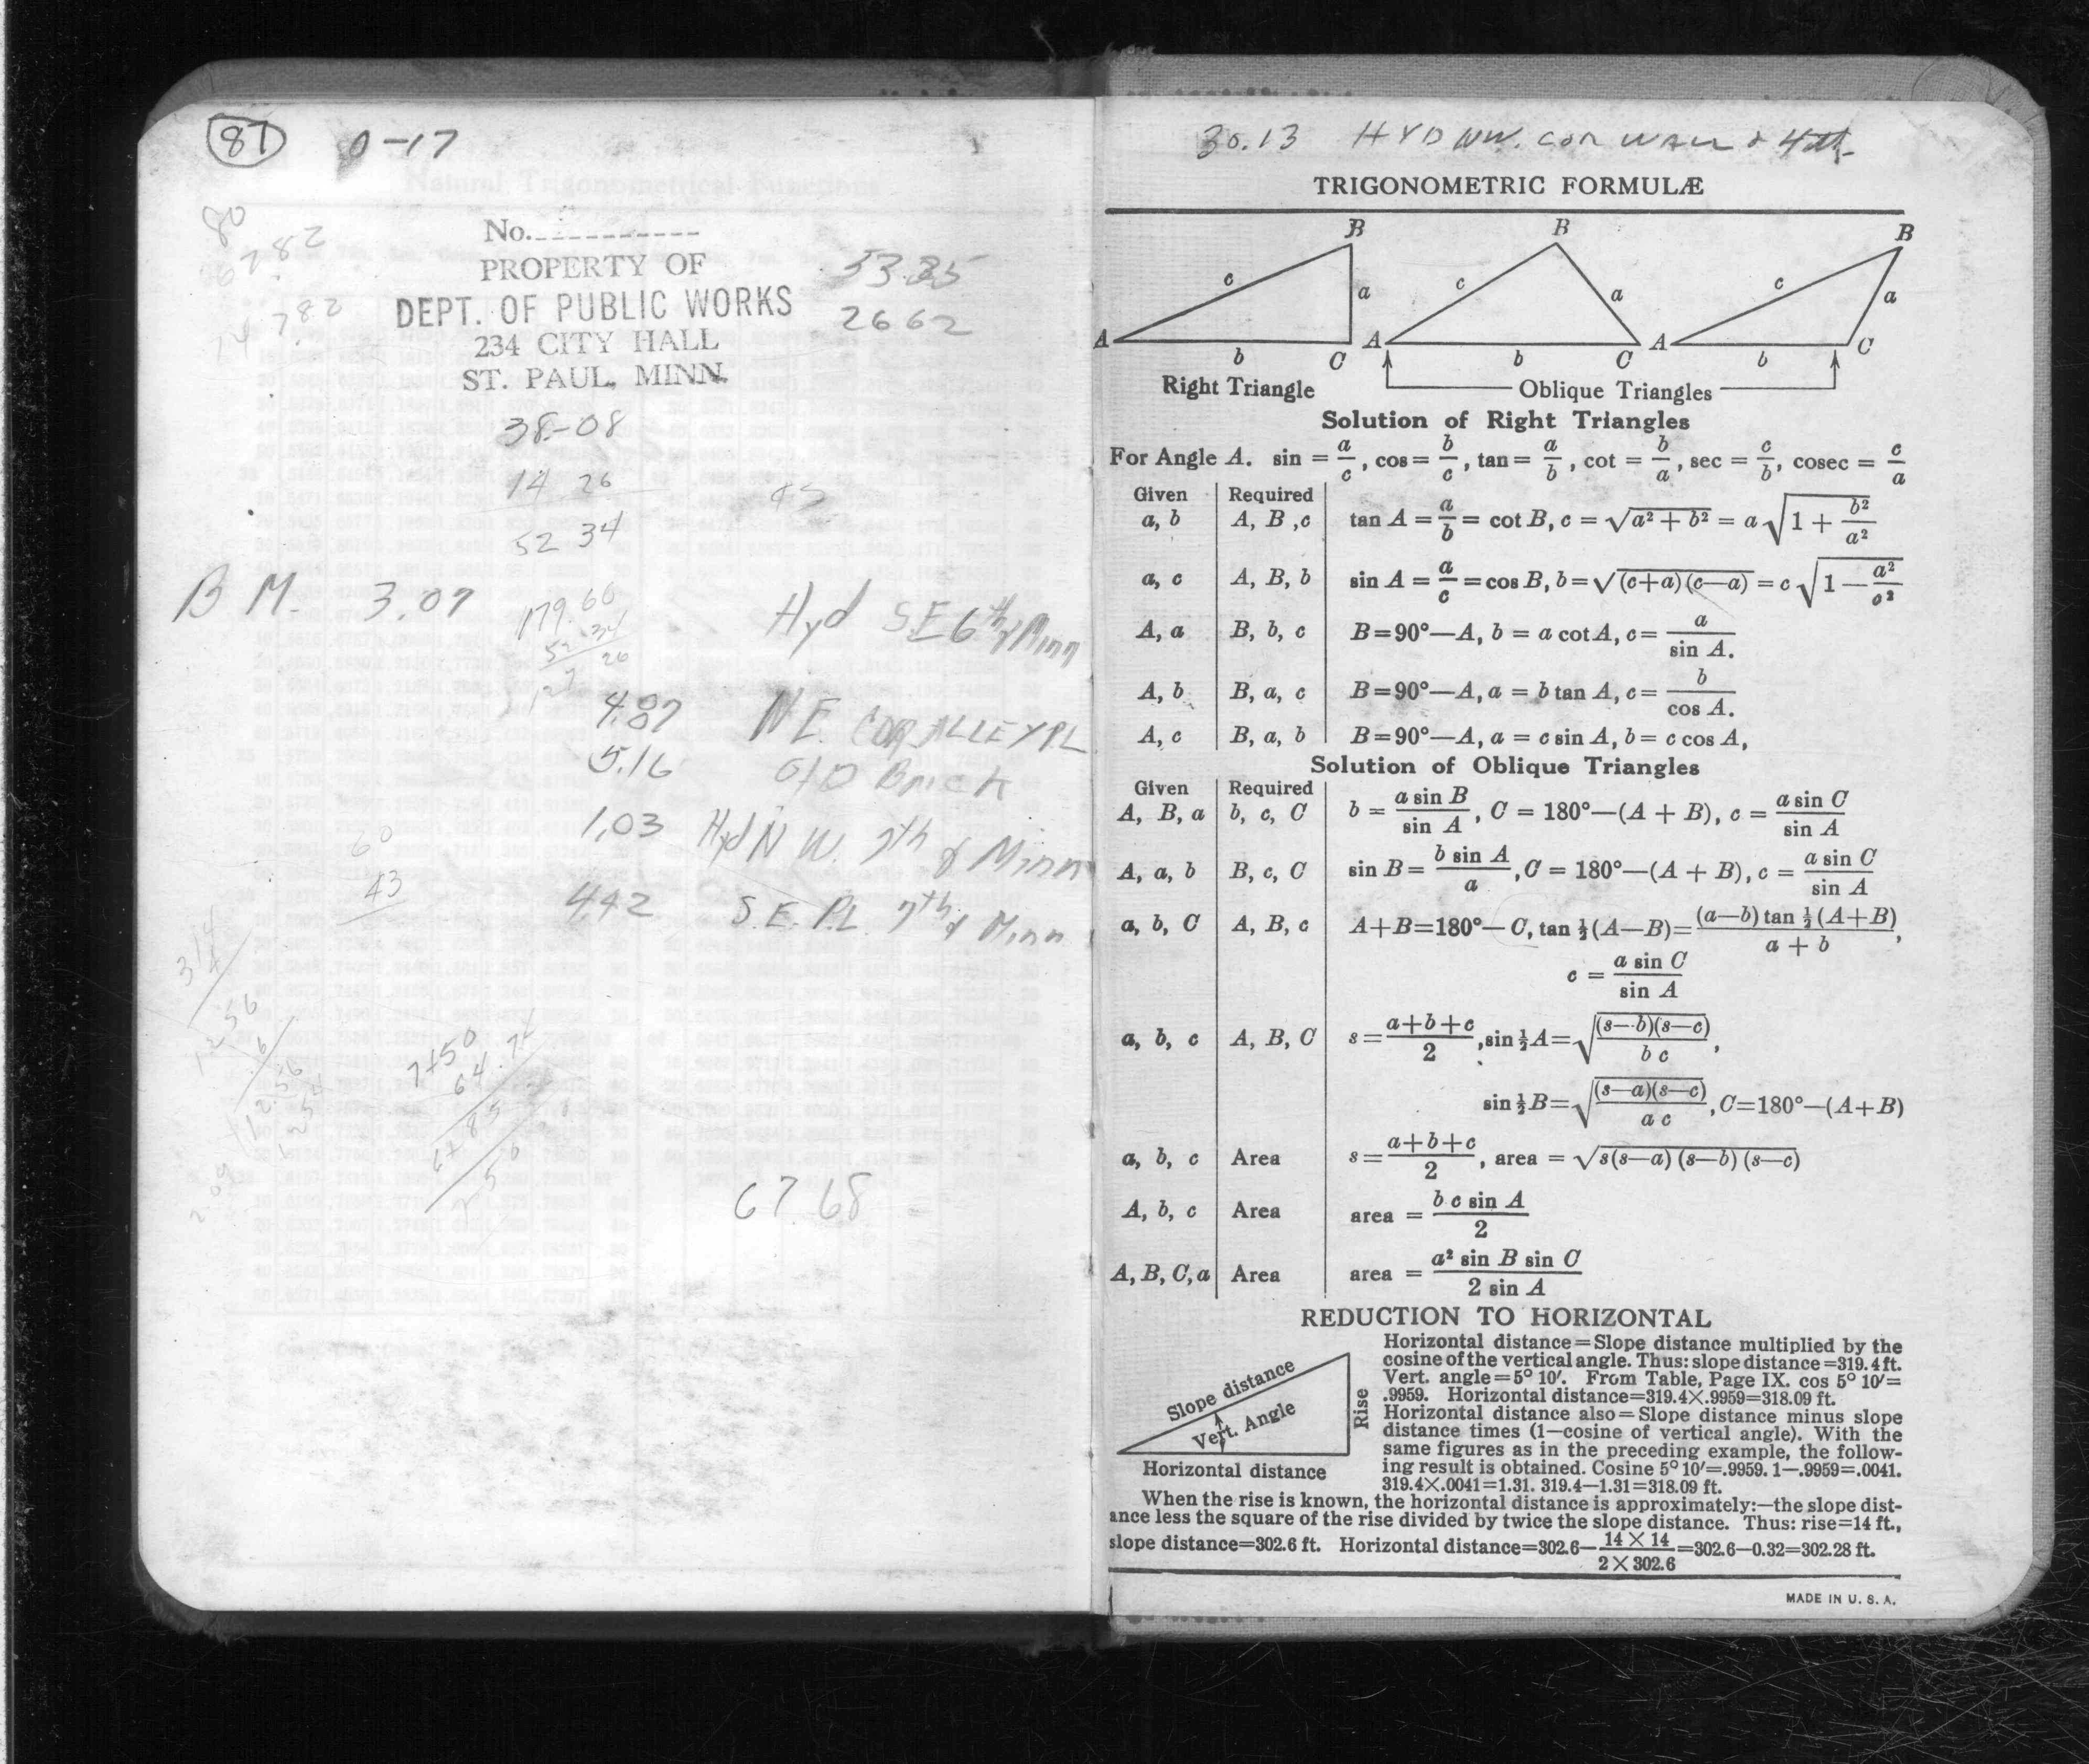 87 0-17
80
782
782
No.
PROPERTY OF
DEPT. OF PUBLIC WORKS
234 CITY HALL
ST. PAUL, MINN.
53.85
2662
38-08
14 26
52 34
45
B M. 3.07 Hyd S.E 6th & Minn
179.60
52 34
26
4.87 N E. COR ALLEY PL
5.16 Brick
1.03 Hyd N W. 7th & Minn
60
43
442 S.E. P.L. 7th & Minn
314
1256
6
7450
64.7
67.68
30.13 HYD NW. COR WALL & 4th
TRIGONOMETRIC FORMULÆ
B B B
c a c a c a
A b C A b C A b C
Right Triangle Oblique Triangles
Solution of Right Triangles
For Angle A. sin = a/c, cos = b/c, tan = a/b, cot = b/a, sec = c/b, cosec = c/a
Given Required
a, b A, B, c tan A = a/b = cot B, c = √(a² + b²) = a √(1 + b²/a²)
a, c A, B, b sin A = a/c = cos B, b = √((c+a)(c—a)) = c √(1—a²/c²)
A, a B, b, c B=90°—A, b = a cot A, c = a/sin A.
A, b B, a, c B=90°—A, a = b tan A, c = b/cos A.
A, c B, a, b B=90°—A, a = c sin A, b = c cos A,
Solution of Oblique Triangles
Given Required
A, B, a b, c, C b = a sin B/sin A, C = 180°—(A + B), c = a sin C/sin A
A, a, b B, c, C sin B = b sin A/a, C = 180°—(A + B), c = a sin C/sin A
a, b, C A, B, c A+B=180°—C, tan ½(A—B)= (a—b) tan ½(A+B)/a + b,
c = a sin C/sin A
a, b, c A, B, C s = a+b+c/2, sin ½A= √((s—b)(s—c)/b c),
sin ½B= √((s—a)(s—c)/a c), C=180°—(A+B)
a, b, c Area s = a+b+c/2, area = √(s(s—a) (s—b) (s—c))
A, b, c Area area = b c sin A/2
A, B, C, a Area area = a² sin B sin C/2 sin A
REDUCTION TO HORIZONTAL
Slope distance
Vert. Angle
Rise
Horizontal distance
Horizontal distance=Slope distance multiplied by the
cosine of the vertical angle. Thus: slope distance=319.4 ft.
Vert. angle=5° 10′. From Table, Page IX. cos 5° 10′=
.9959. Horizontal distance=319.4×.9959=318.09 ft.
Horizontal distance also=Slope distance minus slope
distance times (1—cosine of vertical angle). With the
same figures as in the preceding example, the follow-
ing result is obtained. Cosine 5° 10′=.9959. 1—.9959=.0041.
319.4×.0041=1.31. 319.4—1.31=318.09 ft.
When the rise is known, the horizontal distance is approximately:—the slope dist-
ance less the square of the rise divided by twice the slope distance. Thus: rise=14 ft.,
slope distance=302.6 ft. Horizontal distance=302.6— 14 × 14/2 × 302.6 =302.6—0.32=302.28 ft.
MADE IN U. S. A.